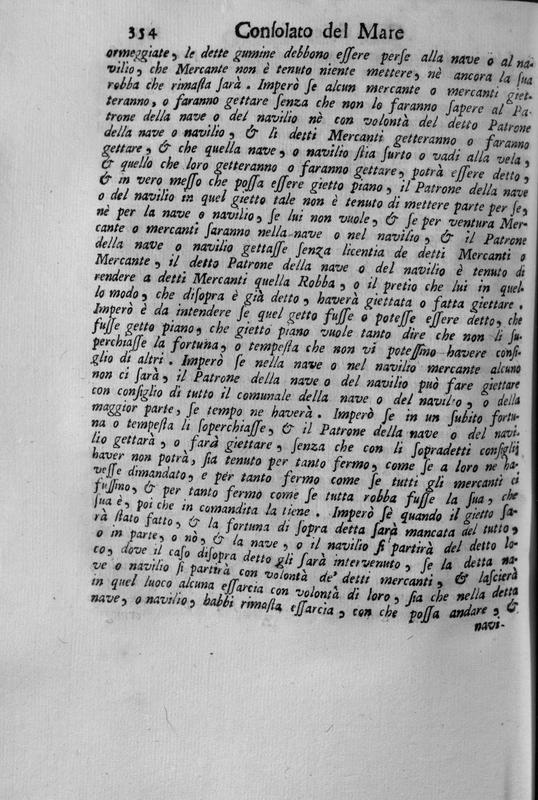 354 Consolato del Mare
ormeggiate, le dette gumine debbono eſſere perſe alla nave o al na-
vilio, che Mercante non è tenuto niente mettere, nè ancora la ſua
robba che rimaſta ſarà. Imperò ſe alcun mercante o mercanti giet-
teranno, o faranno gettare ſenza che non lo faranno ſapere al Pa-
trone della nave o del navilio nè con volontà del detto Patrone
della nave o navilio, & li detti Mercanti getteranno o faranno
gettare, & che quella nave, o navilio ſtia ſurto o vadi alla vela,
& quello che loro getteranno o faranno gettare, potrà eſſere detto,
& in vero meſſo che poſſa eſſere gietto piano, il Patrone della nave
o del navilio in quel gietto tale non è tenuto di mettere parte per ſe,
nè per la nave o navilio, ſe lui non vuole, & ſe per ventura Mer-
cante o mercanti ſaranno nella nave o nel navilio, & il Patrone
della nave o navilio gettaſſe ſenza licentia de detti Mercanti o
Mercante, il detto Patrone della nave o del navilio è tenuto di
rendere a detti Mercanti quella Robba, o il pretio che lui in quel-
lo modo, che diſopra è già detto, haverà giettata o fatta giettare.
Imperò è da intendere ſe quel getto fuſſe o poteſſe eſſere detto, che
fuſſe getto piano, che gietto piano vuole tanto dire che non li ſu-
perchiaſſe la fortuna, o tempeſta che non vi poteſſino havere conſi-
glio di altri. Imperò ſe nella nave o nel navilio mercante alcuno
non ci ſarà, il Patrone della nave o del navilio può fare giettare
con conſiglio di tutto il comunale della nave o del navilio, o della
maggior parte, ſe tempo ne haverà. Imperò ſe in un ſubito fortu-
na o tempeſta li ſoperchiaſſe, & il Patrone della nave o del navi-
lio gettarà, o farà giettare, ſenza che con li ſopradetti conſiglij
haver non potrà, ſia tenuto per tanto fermo, come ſe a loro ne ha-
veſſe dimandato, e per tanto fermo come ſe tutti gli mercanti ci
fuſſino, & per tanto fermo come ſe tutta robba fuſſe la ſua, che
ſua è, poi che in comandita la tiene. Imperò ſe quando il gietto ſa-
rà ſtato fatto, & la fortuna di ſopra detta ſarà mancata del tutto,
o in parte, o nò, & la nave, o il navilio ſi partirà del detto lo-
co, dove il caſo diſopra detto gli ſarà intervenuto, ſe la detta na-
ve o navilio ſi partirà con volontà de' detti mercanti, & laſcierà
in quel luoco alcuna eſſarcia con volontà di loro, ſia che nella detta
nave, o navilio, habbi rimaſta eſſarcia, con che poſſa andare, &
navi-